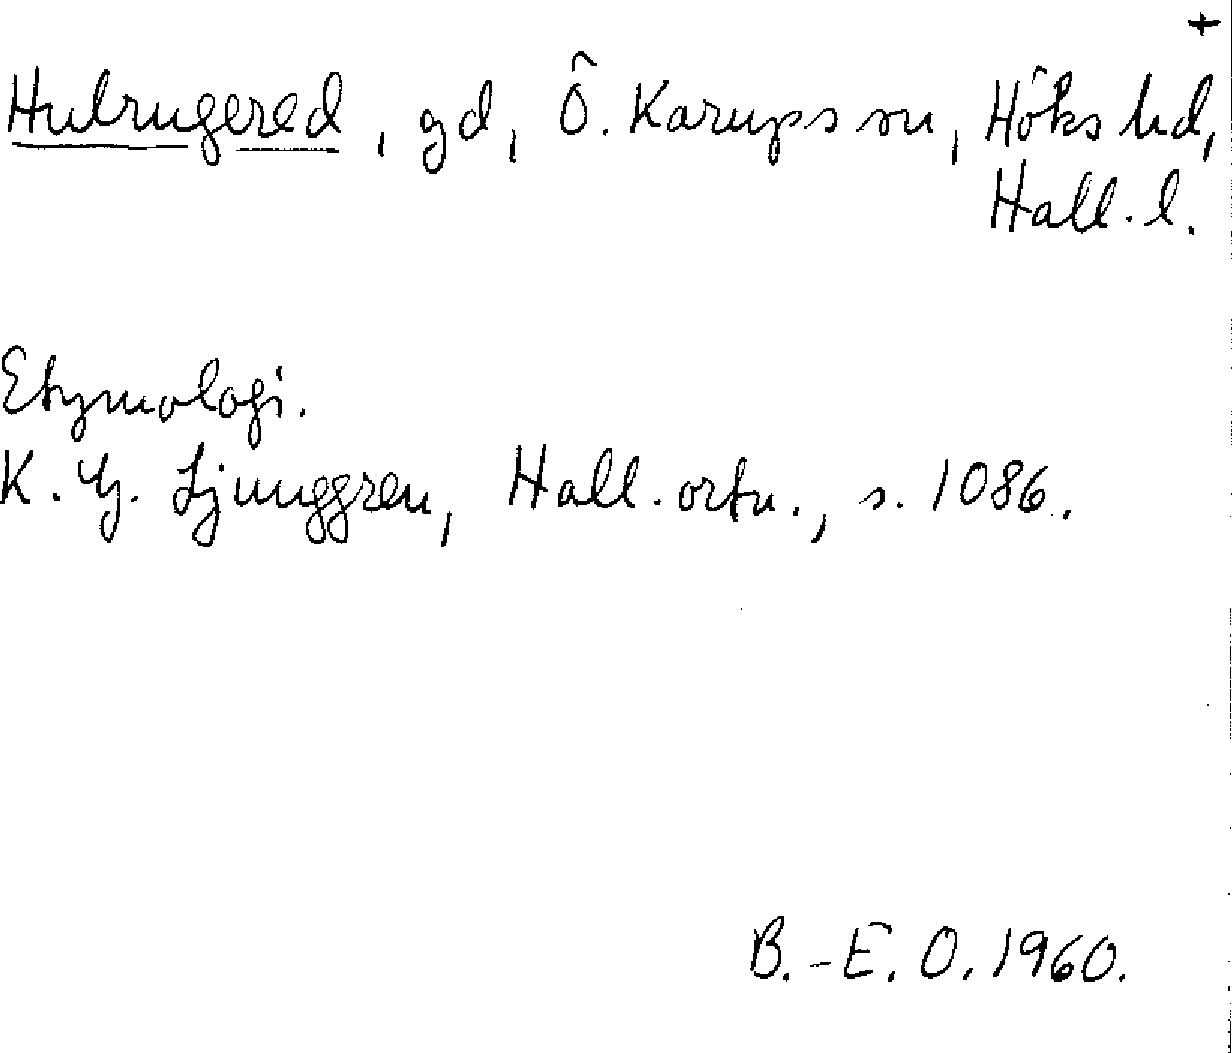 +
Hulrugered, gd, Ö. Karups sn, Höks hd,
Hall. l.
Etymologi.
K. G. Ljunggren, Hall. ortn., s. 1086.
B.-E. O. 1960.